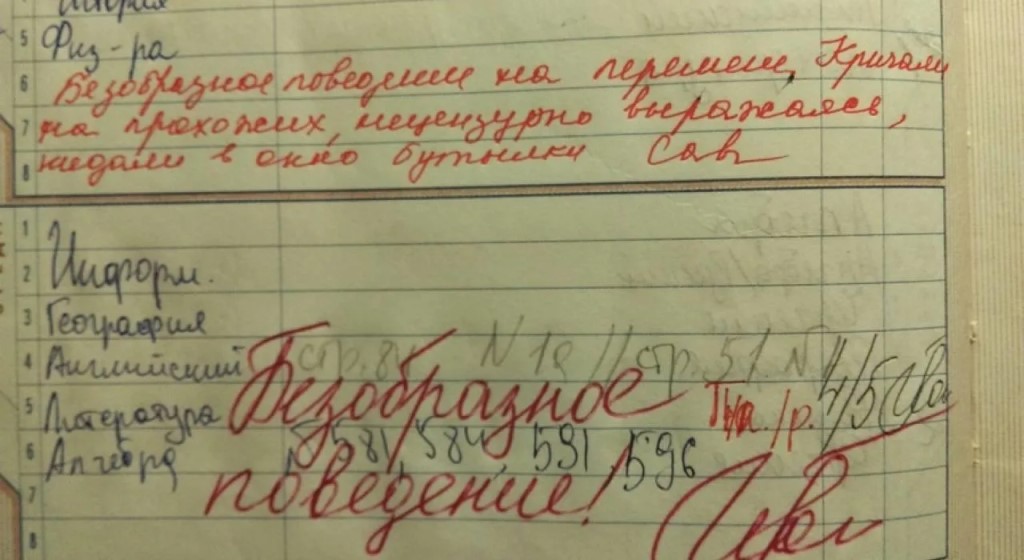 История
5 Физ-ра
6 Безобразное поведение на перемен, Кричали
7 на прохожих, нецензурно выражаясь,
8 кидали в окно бутылки Сав
1
Информ.
2
3 География
4 Английский стр. 84 N 1а // стр. 51 N 4/5
5 Литература Безобразное /р.
6 Алгебра 581, 584, 591, 596
7 поведение!
8